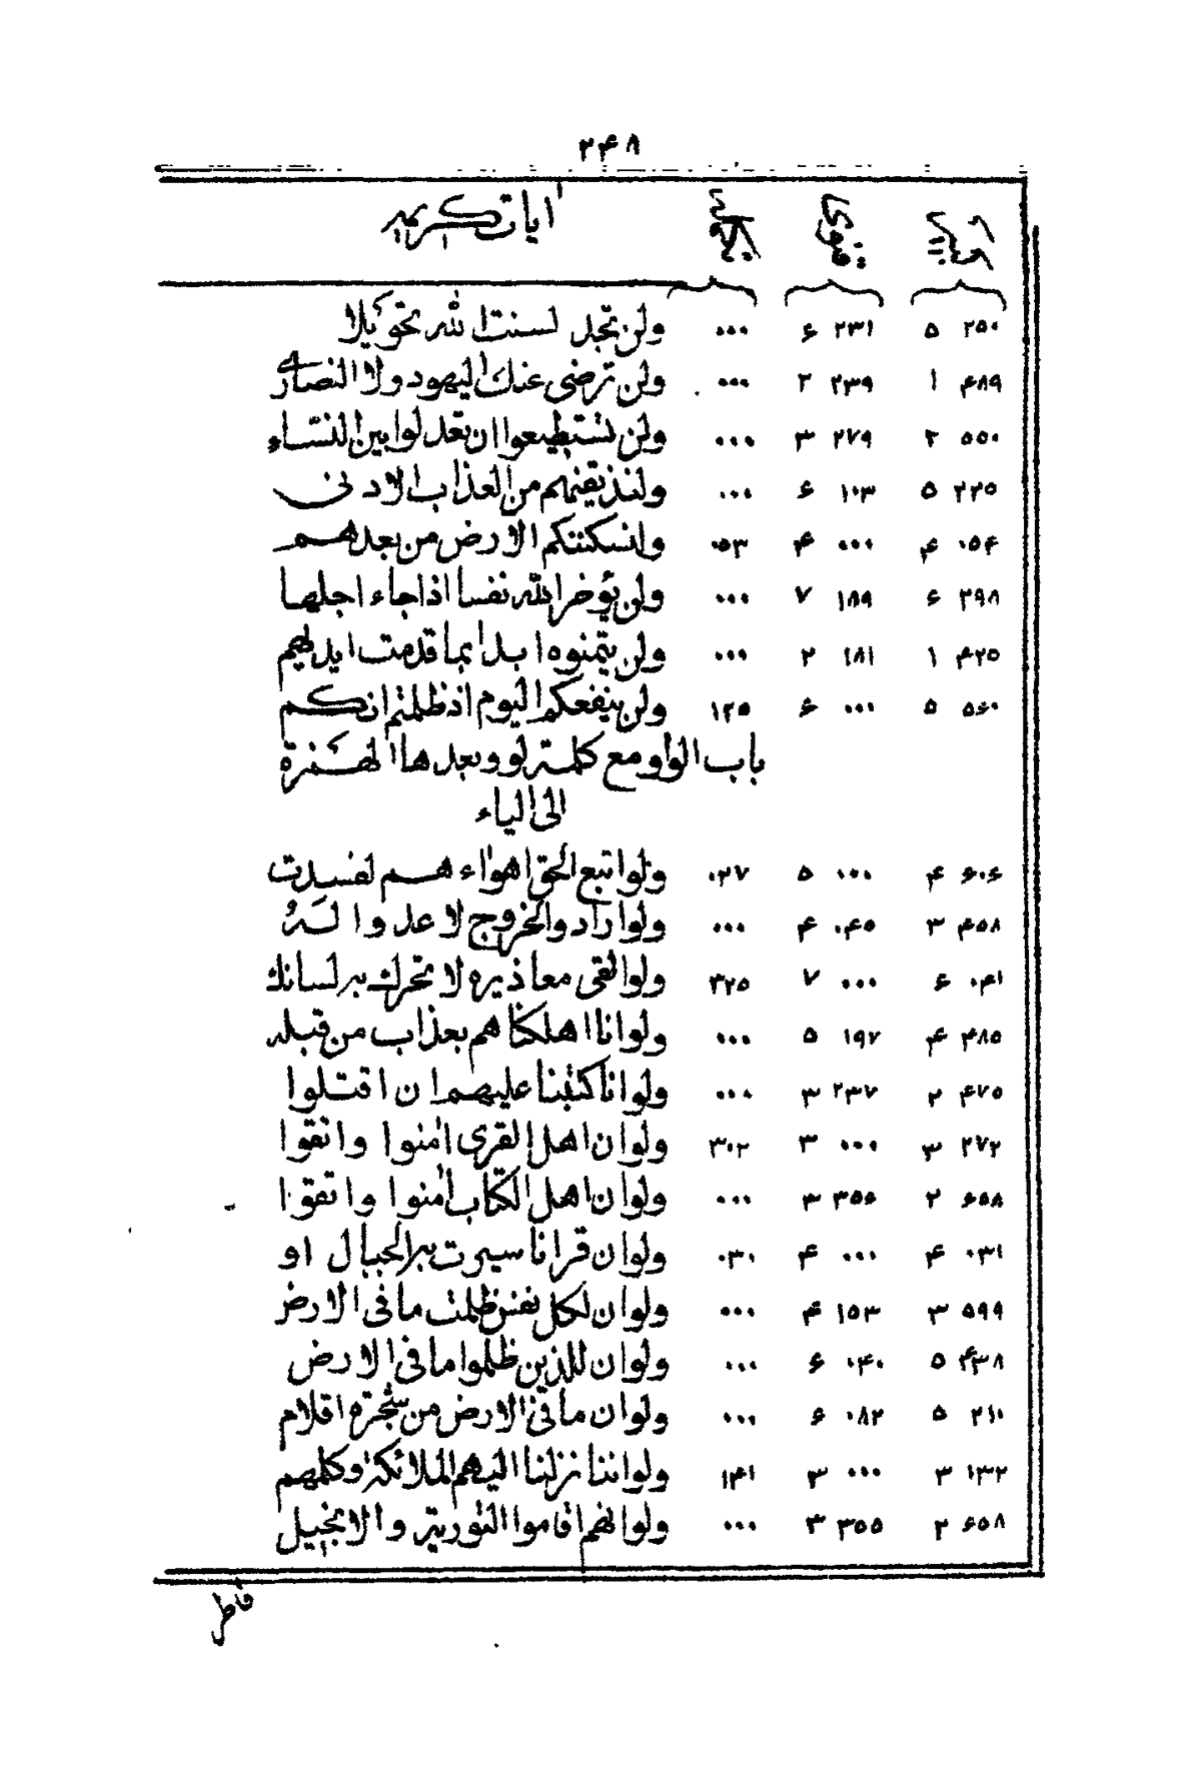 ۲۴۸
ايات كريمه
۲۵۰ ۵ ۲۳۱ ۶ ۰۰۰ ولن تجد لسنت الله تحويلا
۴۸۹ ۱ ۲۳۹ ۲ ۰۰۰ ولن ترضى عنك اليهود ولا النصارى
۵۵۰ ۲ ۲۷۹ ۳ ۰۰۰ ولن تستطيعوا ان تعدلوا بين النساء
۲۲۵ ۵ ۱۰۳ ۶ ۰۰۰ ولنذيقنهم من العذاب الادنى
۰۵۴ ۴ ۰۰۰ ۴ ۰۵۳ ولنسكننكم الارض من بعدهم
۲۹۸ ۶ ۱۸۹ ۷ ۰۰۰ ولن يؤخر الله نفسا اذا جاء اجلها
۴۲۵ ۱ ۱۸۱ ۲ ۰۰۰ ولن يتمنوه ابدا بما قدمت ايديهم
۵۶۰ ۵ ۰۰۰ ۶ ۱۲۵ ولن ينفعكم اليوم اذ ظلمتم انكم
باب الواو مع كلمة لو وبعدها الهمزة
الى الياء
۶۰۶ ۴ ۰۰۰ ۵ ۰۲۷ ولو اتبع الحق اهواءهم لفسدت
۴۵۸ ۳ ۰۴۵ ۴ ۰۰۰ ولو ارادوا الخروج لاعدوا له
۰۴۱ ۶ ۰۰۰ ۷ ۳۲۵ ولو القى معاذيره لا تحرك به لسانك
۴۸۵ ۴ ۱۹۷ ۵ ۰۰۰ ولو انا اهلكناهم بعذاب من قبله
۴۷۵ ۲ ۲۳۷ ۳ ۰۰۰ ولو انا كتبنا عليهم ان اقتلوا
۲۷۲ ۳ ۰۰۰ ۳ ۳۰۲ ولو ان اهل القرى امنوا واتقوا
۶۵۸ ۲ ۳۵۶ ۳ ۰۰۰ ولو ان اهل الكتاب امنوا واتقوا
۰۳۱ ۴ ۰۰۰ ۴ ۰۳۰ ولو ان قرانا سيرت به الجبال او
۵۹۹ ۳ ۱۵۳ ۴ ۰۰۰ ولو ان لكل نفس ظلمت ما فى الارض
۴۳۸ ۵ ۰۴۰ ۶ ۰۰۰ ولو ان للذين ظلموا ما فى الارض
۲۱۰ ۵ ۰۸۲ ۶ ۰۰۰ ولو ان ما فى الارض من شجرة اقلام
۱۳۲ ۳ ۰۰۰ ۳ ۱۴۱ ولو اننا نزلنا اليهم الملائكة وكلمهم
۶۵۸ ۲ ۳۵۵ ۳ ۰۰۰ ولو انهم اقاموا التورية والانجيل